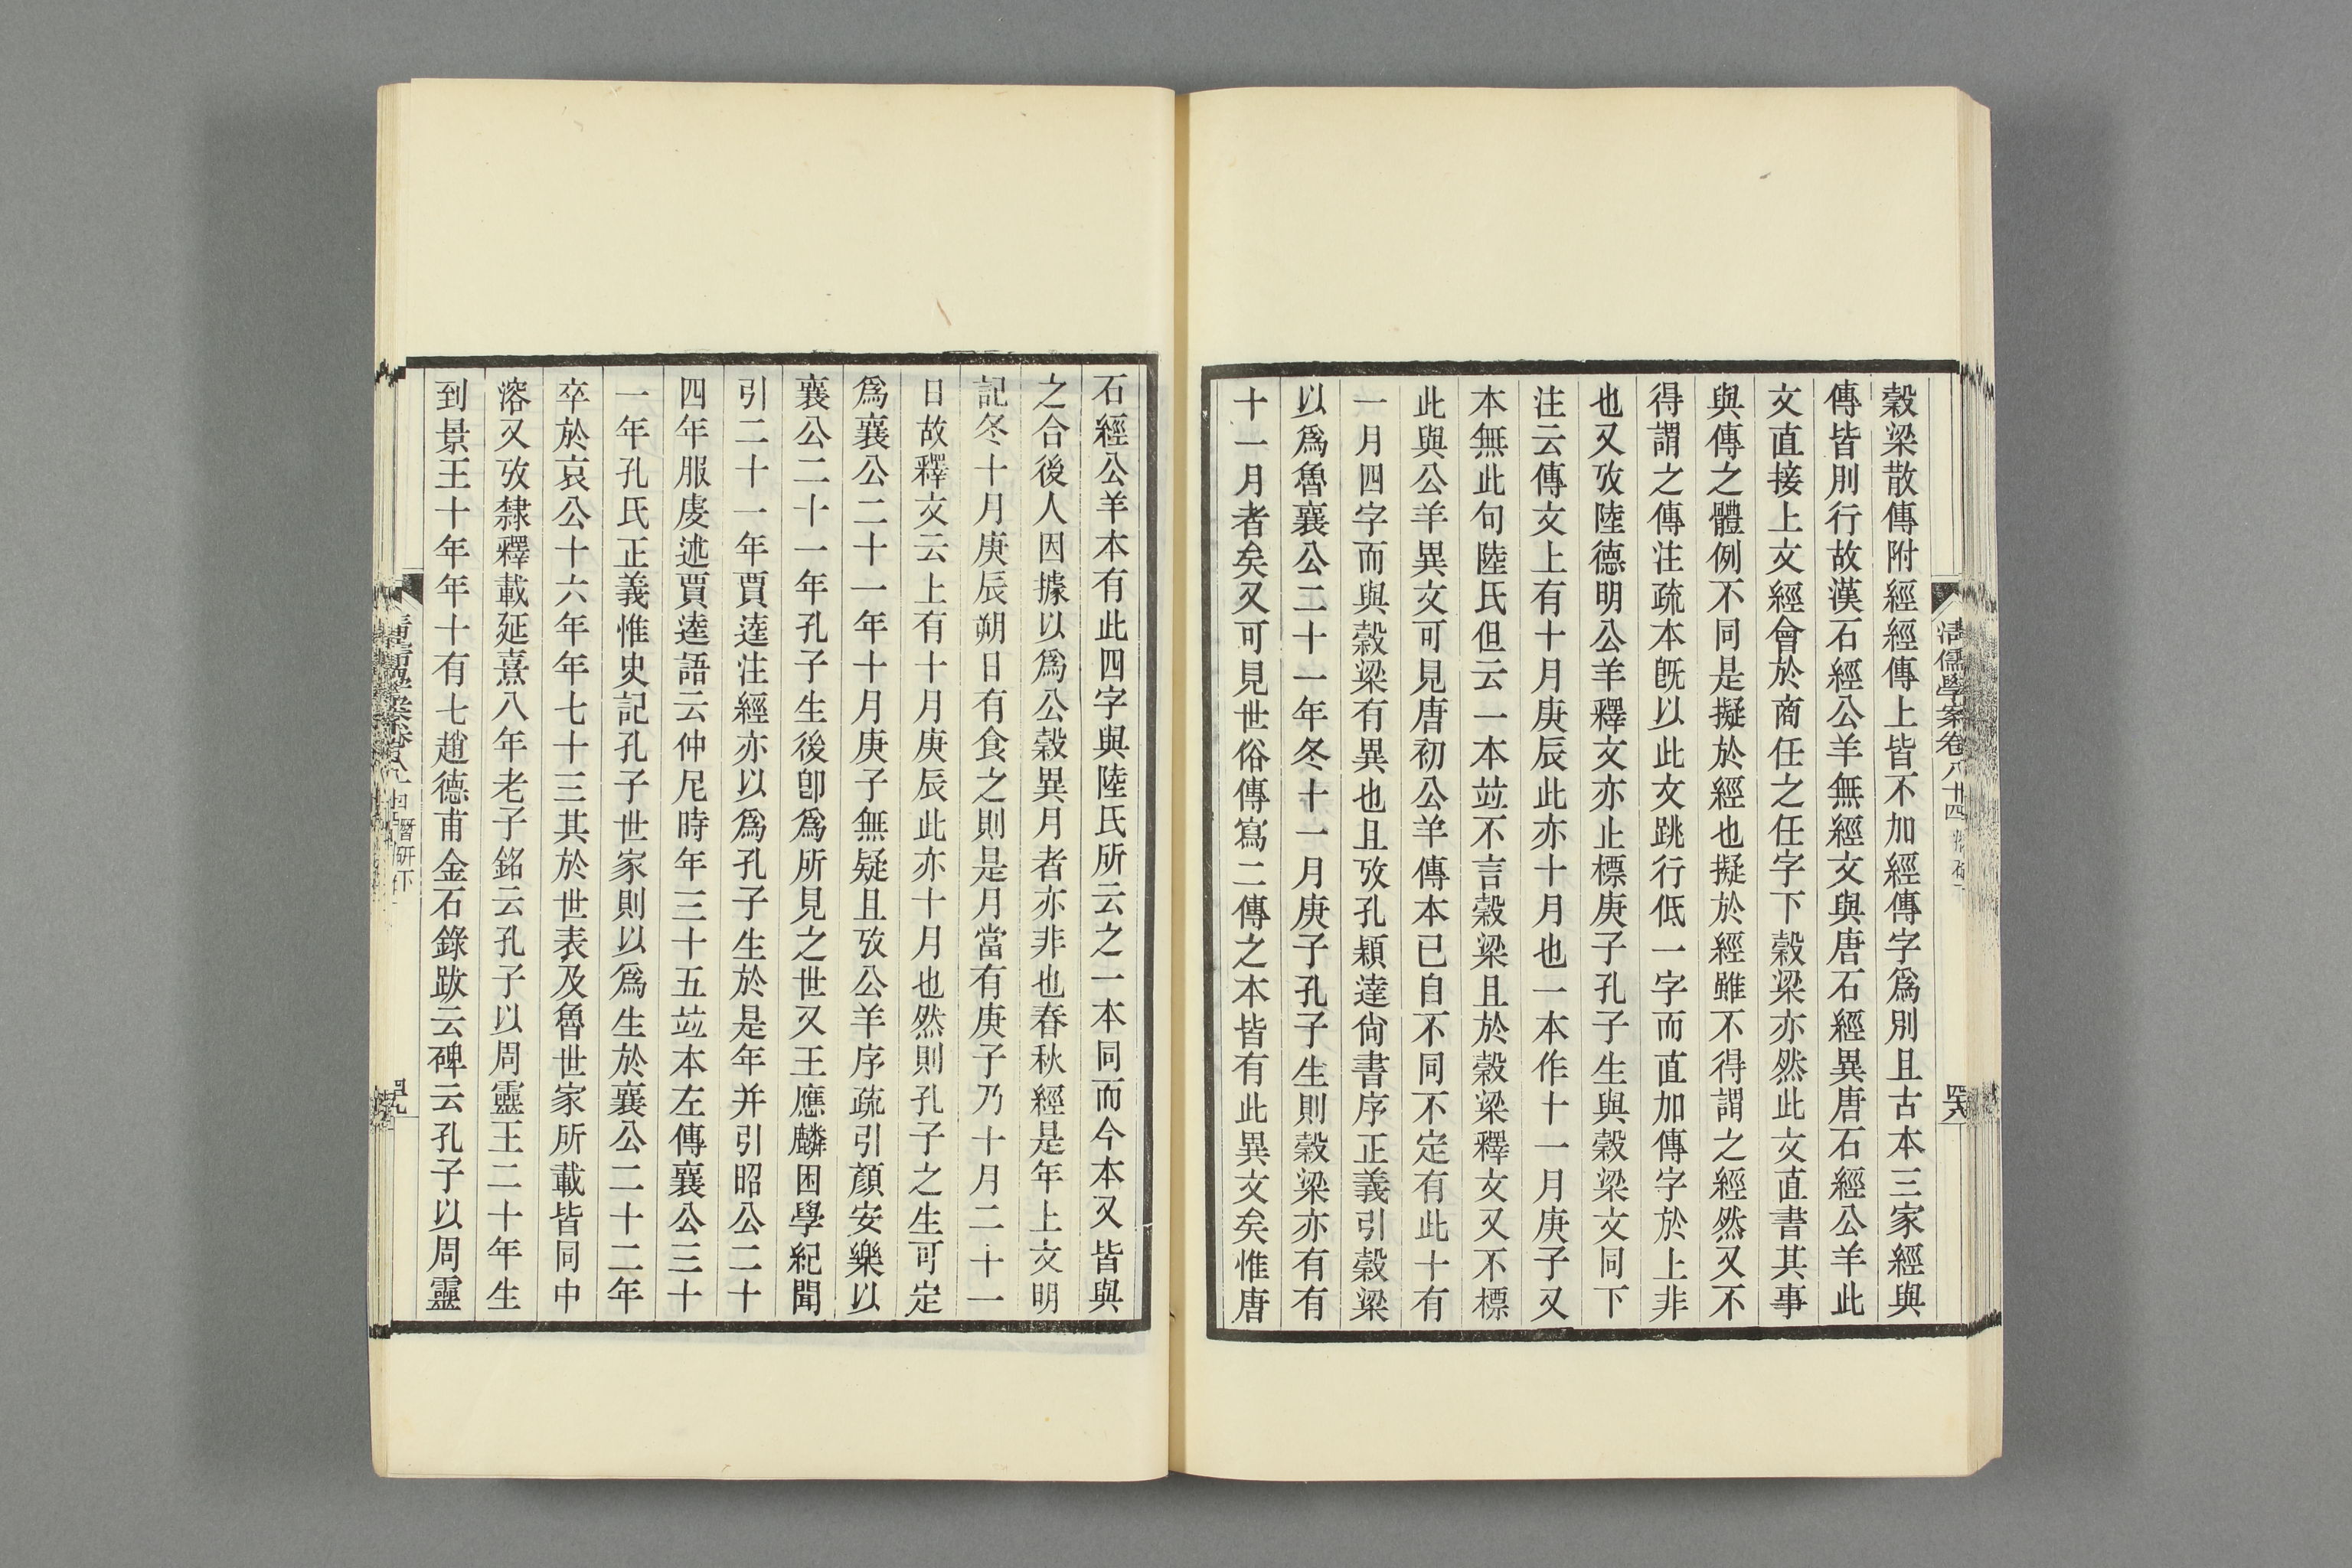 清儒學案卷八十四
穀梁散傳附經經傳上皆不加經傳字爲別且古本三家經與
傳皆別行故漢石經公羊無經文與唐石經異唐石經公羊此
文直接上文經會於商任之任字下穀梁亦然此文直書其事
與傳之體例不同是擬於經也擬於經雖不得謂之經然又不
得謂之傳注疏本旣以此文跳行低一字而直加傳字於上非
也又攷陸德明公羊釋文亦止標庚子孔子生與穀梁文同下
注云傳文上有十月庚辰此亦十月也一本作十一月庚子又
本無此句陸氏但云一本竝不言穀梁且於穀梁釋文又不標
此與公羊異文可見唐初公羊傳本已自不同不定有此十有
一月四字而與穀梁有異也且攷孔穎達尙書序正義引穀梁
以爲魯襄公二十一年冬十一月庚子孔子生則穀梁亦有有
十一月者矣又可見世俗傳寫二傳之本皆有此異文矣惟唐
石經公羊本有此四字與陸氏所云之一本同而今本又皆與
之合後人因據以爲公穀異月者亦非也春秋經是年上文明
記冬十月庚辰朔日有食之則是月當有庚子乃十月二十一
日故釋文云上有十月庚辰此亦十月也然則孔子之生可定
爲襄公二十一年十月庚子無疑且攷公羊序疏引顏安樂以
襄公二十一年孔子生後卽爲所見之世又王應麟困學紀聞
引二十一年賈逵注經亦以爲孔子生於是年并引昭公二十
四年服虔述賈逵語云仲尼時年三十五竝本左傳襄公三十
一年孔氏正義惟史記孔子世家則以爲生於襄公二十二年
卒於哀公十六年年七十三其於世表及魯世家所載皆同中
溶又攷隸釋載延熹八年老子銘云孔子以周靈王二十年生
到景王十年年十有七趙德甫金石錄跋云碑云孔子以周靈